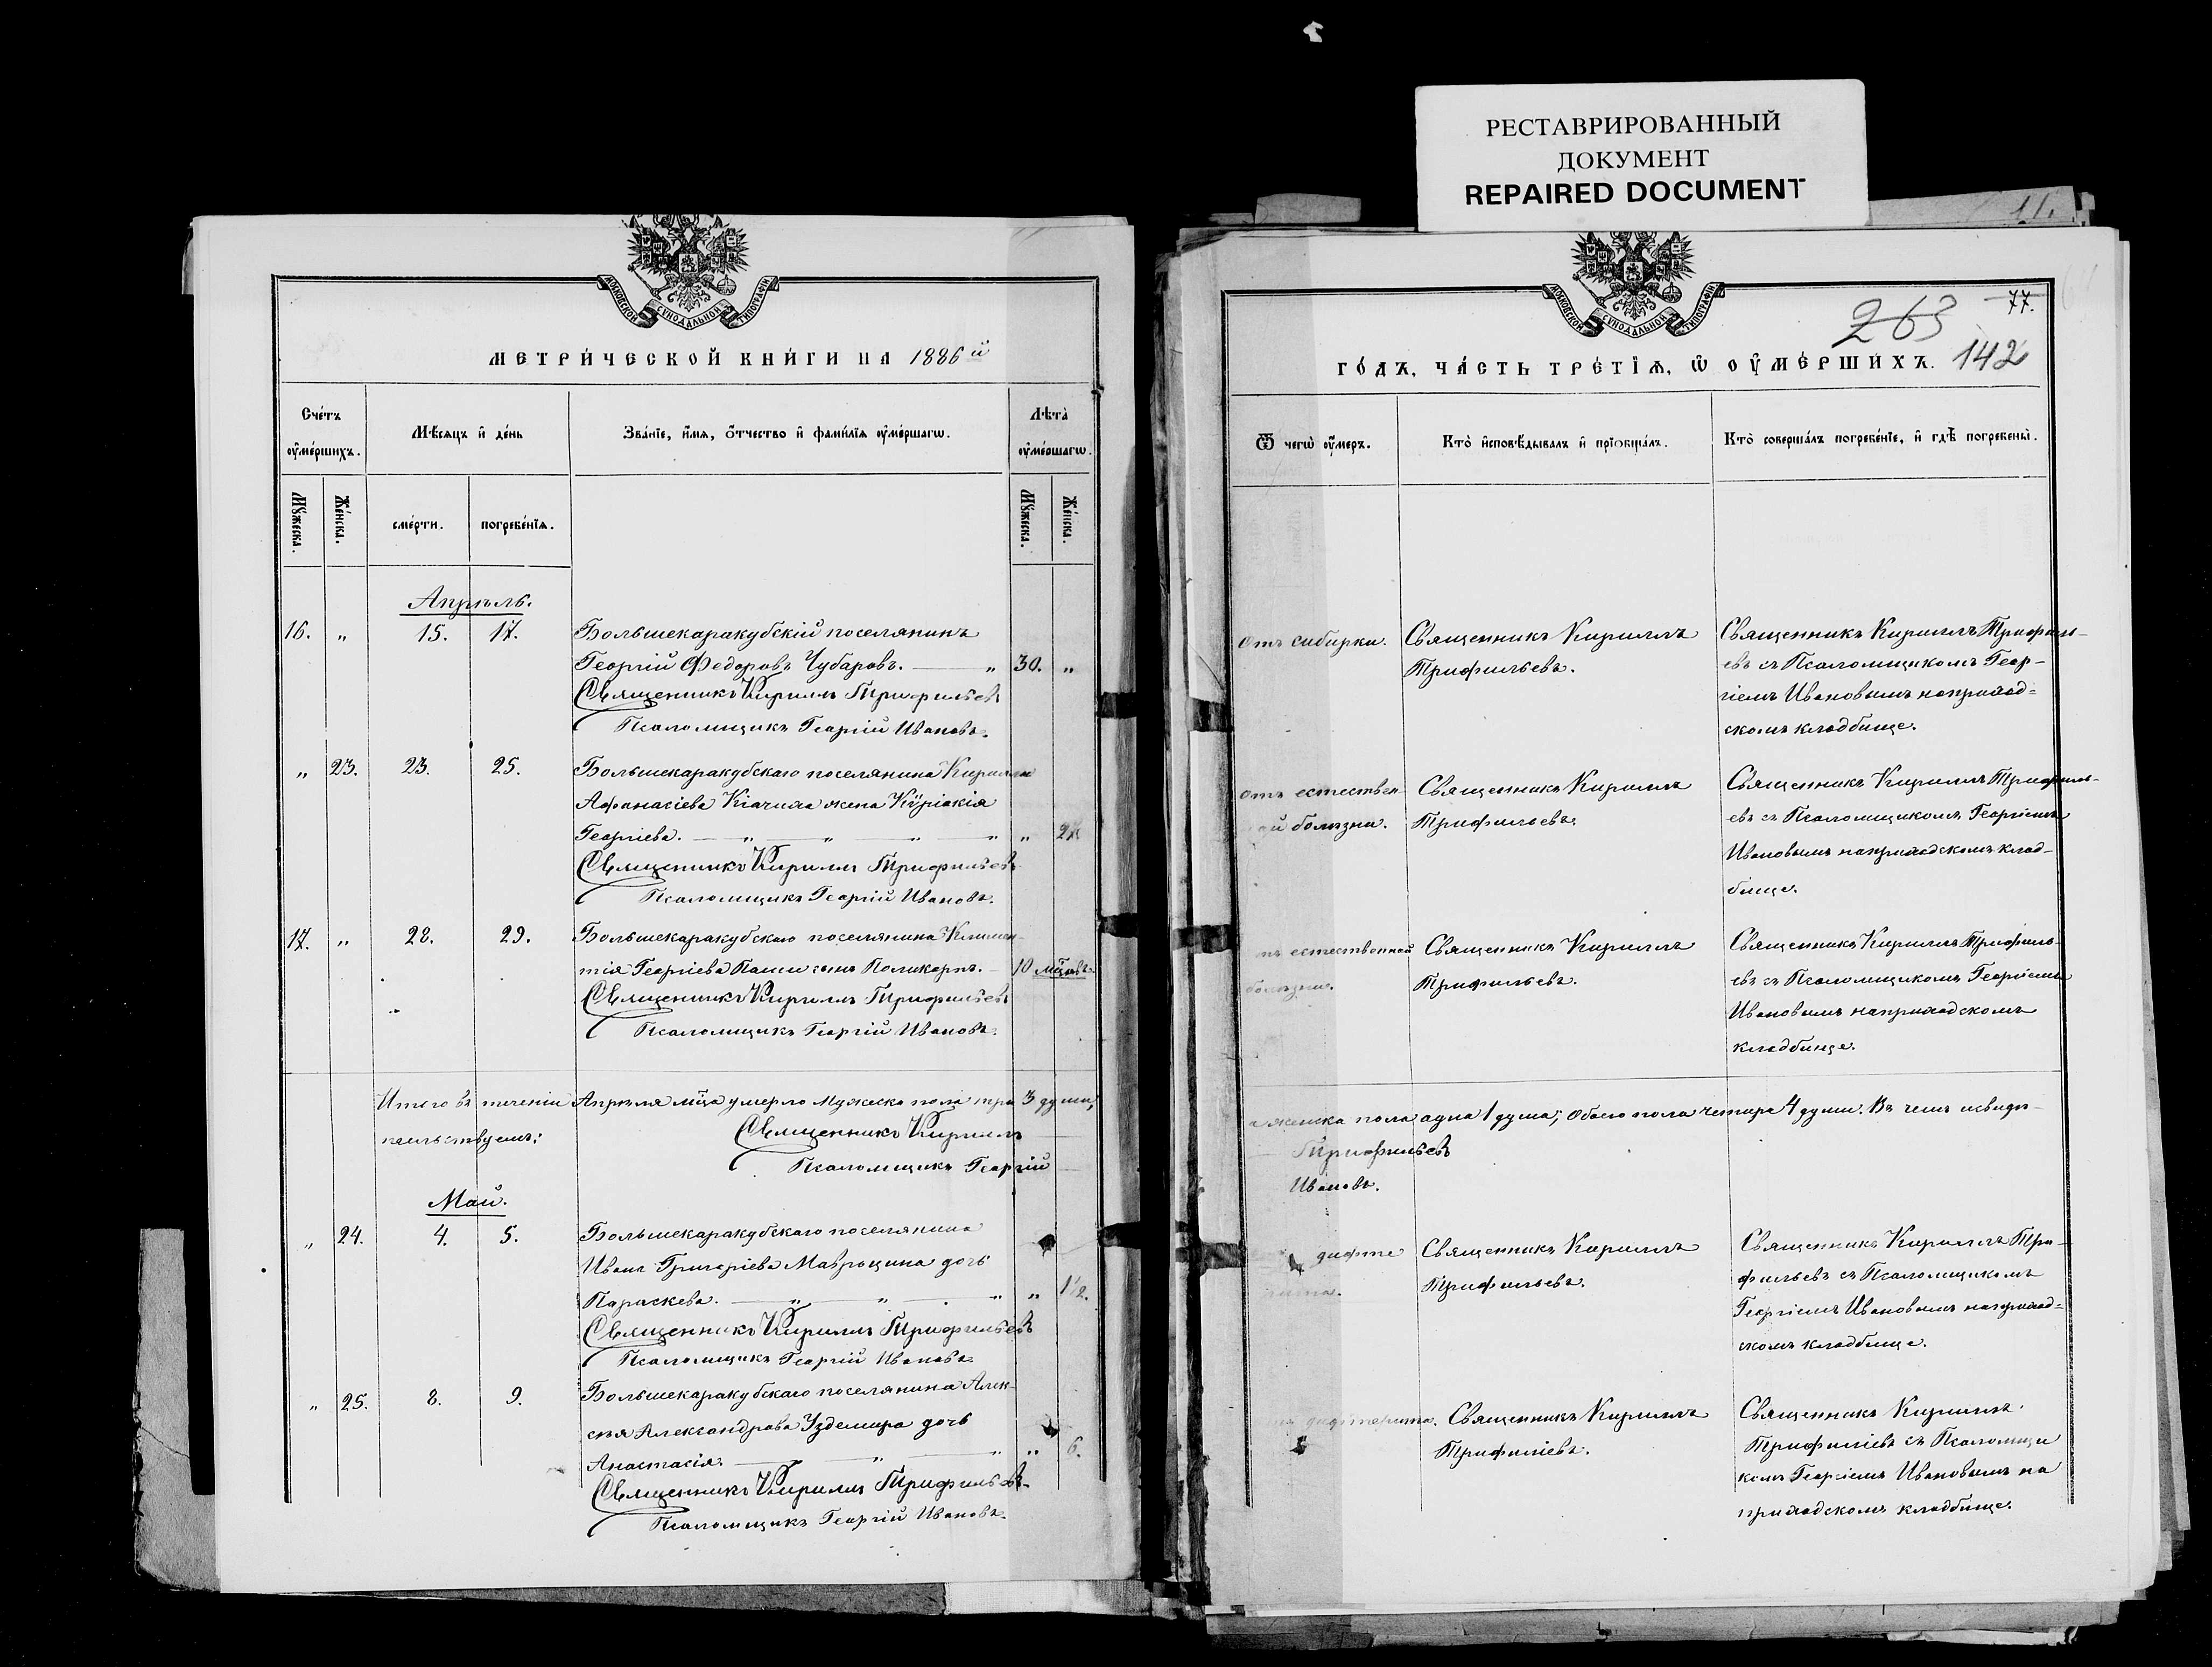 РЕСТАВРИРОВАННЫЙ
ДОКУМЕНТ
REPAIRED DOCUMENT
МОСКОВСКОЙ СУНОДАЛЬНОЙ ТИПОГРАФІИ
МЕТРИ́ЧЕСКОЙ КНИ́ГИ НА 1886 й
Сче́тъ ᲂу҆ме́ршихъ.
Мѣ́сяцъ и҆ де́нь
Зва́нїе, и҆́мя, ѻ҆́тчество и҆ фами́лїя ᲂу҆ме́ршагѡ.
Лѣта̀ ᲂу҆ме́ршагѡ.
Мꙋ́жеска.
Же́нска.
сме́рти.
погребе́нїѧ.
Мꙋ́жеска.
Же́нска.
Апрѣль.
16. „ 15. 17. Большекаракубскій поселянинъ
Георгій Федоровъ Чубаровъ. — „ 30. „
Священникъ Кириллъ Трифильевъ
Псаломщикъ Георгій Ивановъ.
„ 23. 23. 25. Большекаракубскаго поселянина Кирилла
Афанасіева Кіачила жена Кѵріакія
Георгіева. — „ — „ — „ — „ „
Священникъ Кириллъ Трифильевъ
Псаломщикъ Георгій Ивановъ.
17. „ 28. 29. Большекаракубскаго поселянина Климен-
тія Георгіева Паши сынъ Поликарпъ. — 10 мцовъ.
Священникъ Кириллъ Трифильевъ
Псаломщикъ Георгій Ивановъ.
Итого въ теченіи Апрѣля мца умерло Мужеска пола три 3 души,
тельствуемъ:
Священникъ Кириллъ
Псаломщикъ Георгій
Май.
„ 24. 4. 5. Большекаракубскаго поселянина
Ивана Григоріева Маврыцина дочь
Параскева. — „ — „ — „ „ 1½.
Священникъ Кириллъ Трифильевъ
Псаломщикъ Георгій Ивановъ.
„ 25. 8. 9. Большекаракубскаго поселянина Алек-
сѣя Александрова Уздемира дочь
Анастасія. — „ — „ „ 6.
Священникъ Кириллъ Трифильевъ.
Псаломщикъ Георгій Ивановъ.
МОСКОВСКОЙ СУНОДАЛЬНОЙ ТИПОГРАФІИ
77.
263
142
ГО́ДЪ, ЧА́СТЬ ТРЕ́ТЇѦ, Ѡ҆ ОУ҆МЕ́РШИХЪ.
Ѿ чегѡ̀ ᲂу҆́меръ.
Кто̀ и҆сповѣ́дывалъ и҆ прїѡбща́лъ.
Кто̀ соверша́лъ погребе́нїе, и҆ гдѣ̀ погребены̀.
Отъ сибирки.
Священникъ Кириллъ
Трифильевъ.
Священникъ Кириллъ Трифиль-
евъ съ Псаломщикомъ Геор-
гіемъ Ивановымъ на приход-
скомъ кладбище.
отъ естествен-
ой болѣзни.
Священникъ Кириллъ
Трифильевъ.
Священникъ Кириллъ Трифиль-
евъ съ Псаломщикомъ Георгіемъ
Ивановымъ на приходскомъ клад-
бище.
естественной
болѣзни.
Священникъ Кириллъ
Трифильевъ.
Священникъ Кириллъ Трифиль-
евъ съ Псаломщикомъ Георгіемъ
Ивановымъ на приходскомъ
кладбище.
женска пола адна 1 душа; Обоего пола четыре 4 души. Въ чемъ и свидѣ-
Трифильевъ
Ивановъ.
дифте
рита.
Священникъ Кириллъ
Трифильевъ.
Священникъ Кириллъ Три-
фильевъ съ Псаломщикомъ
Георгіемъ Ивановымъ на приход-
скомъ кладбище.
дифтерита.
Священникъ Кириллъ
Трифиліевъ.
Священникъ Кириллъ
Трифиліевъ съ Псаломщи
комъ Георгіемъ Ивановымъ на
приходскомъ кладбище.